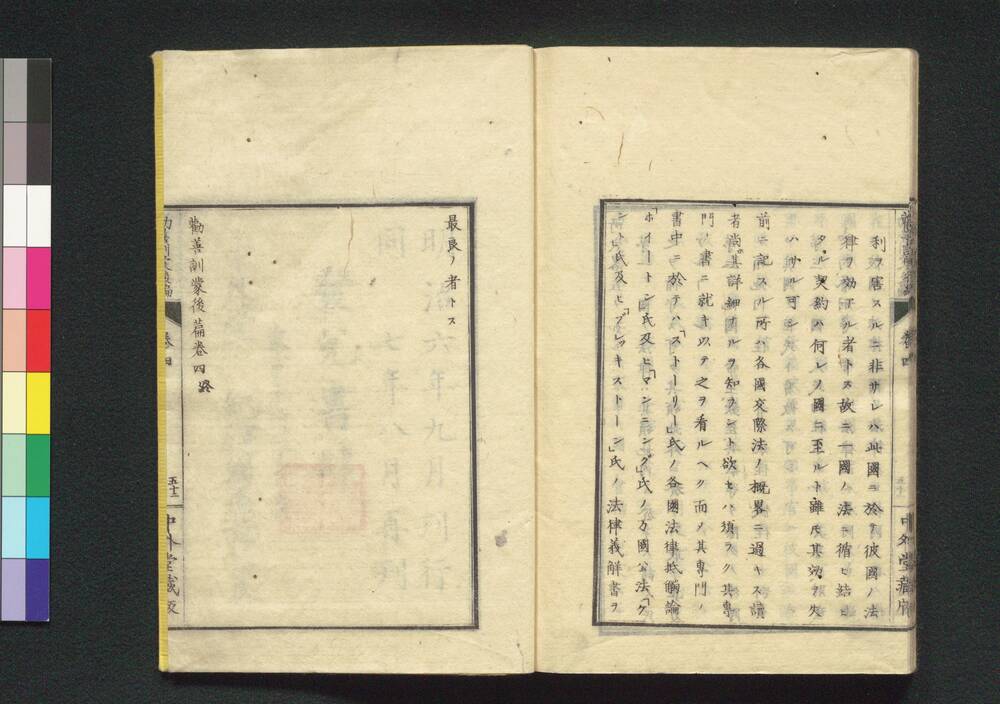 利ヲ害スルニ非サレハ此國ニ於テ彼國ノ法
律ヲ効アル者トス故ニ一國ノ法ニ循ヒ結ヒ
タル契約ハ何レノ國ニ至ルト雖𪜈其効ヲ失
ハサル可シ
前ニ記スル所ハ各國交際法ノ概畧ニ過キス讀
者尚其詳細ナルヲ知ラント欲セハ須ラク其專
門ノ書ニ就キ以テ之ヲ看ルヘク而〆其專門ノ
書中ニ於テハ「ストーリー」氏ノ各國法律抵觸論
「ホイートン」氏及ヒ「マンニング」氏ノ万國公法「グ
ラント」氏及ヒ「ブレッキストーン」氏ノ法律義解書ヲ
中外堂藏版
最良ノ者トス
勸善訓蒙後篇卷四 終
卷四
五十二
中外堂藏版